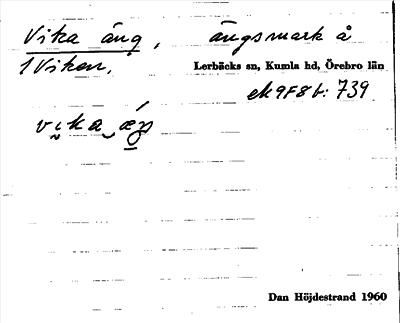 Vika äng, ängsmark å
1 Viken.
Lerbäcks sn, Kumla hd, Örebro län
ek 9F8b: 739
Dan Höjdestrand 1960